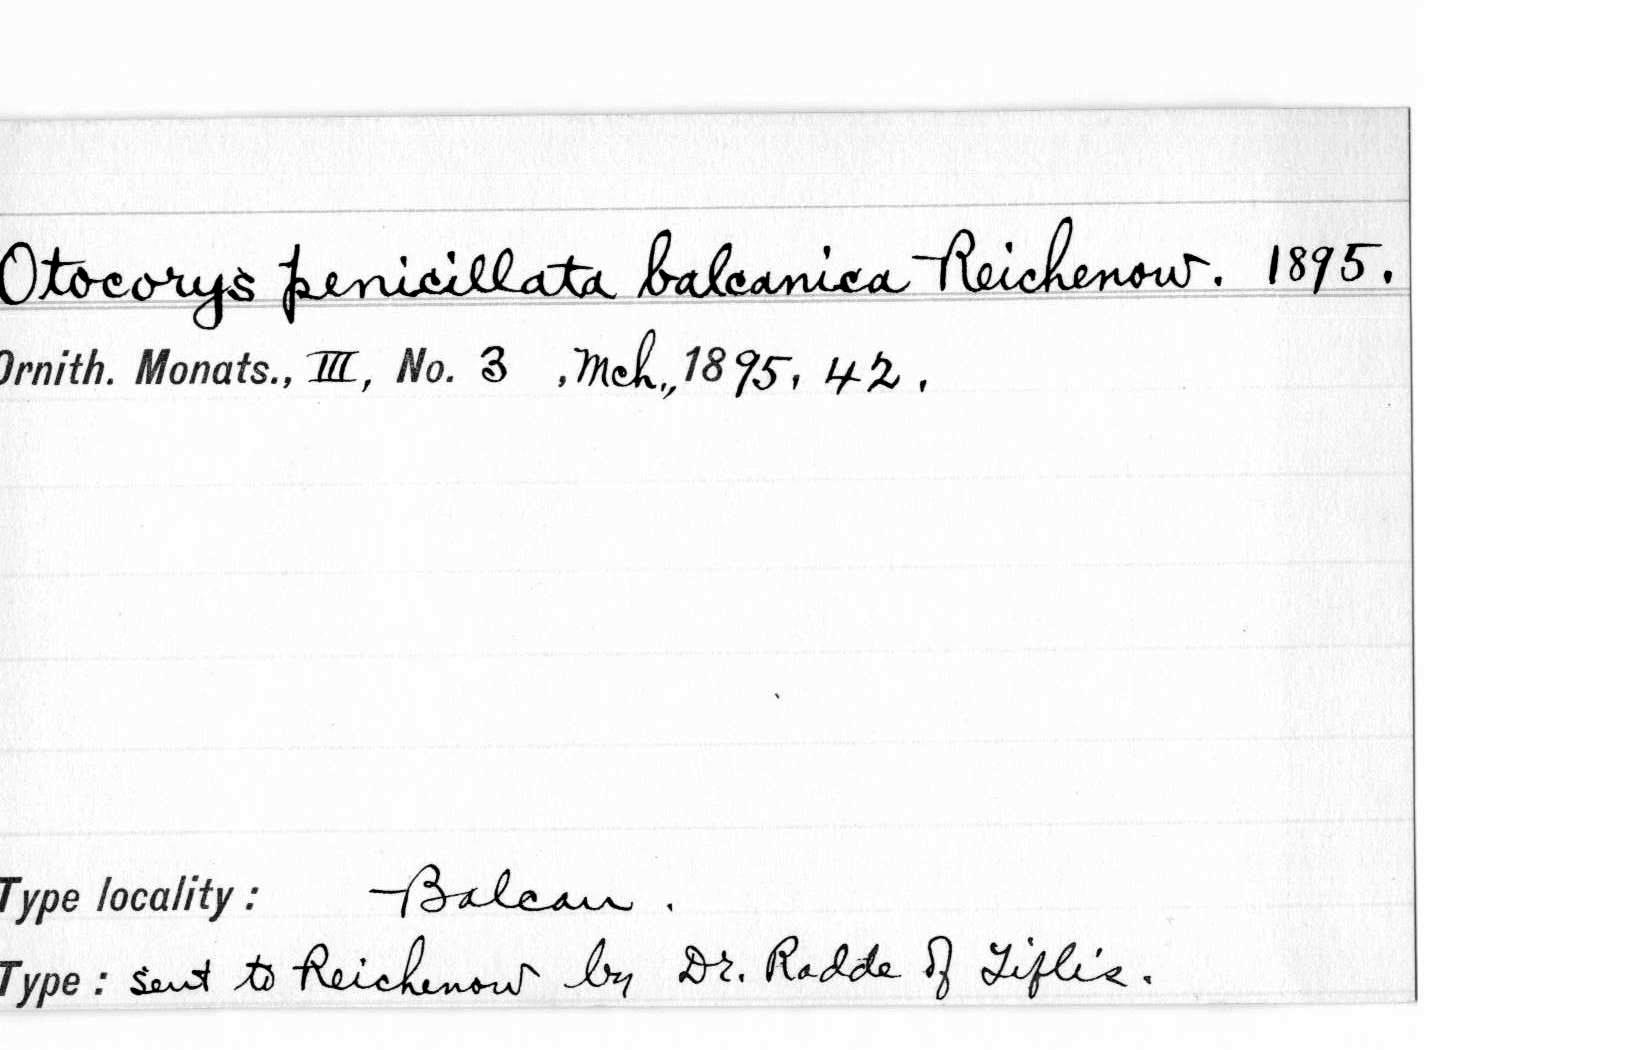 Otocorys penicillata balcanica Reichenow. 1895.
Ornith. Monats., III, No. 3 , Mch., 1895, 42.
Type locality: Balcan.
Type: sent to Reichenow by Dr. Radde of Tiflis.